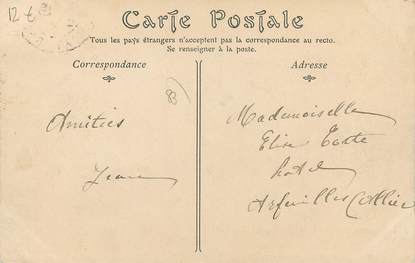 12 €
Carte Postale
Tous les pays étrangers n'acceptent pas la correspondance au recto.
Se renseigner à la poste.
Correspondance
Adresse
83
Amitiés
Jean
Mademoiselle
Elise
hotel
Arfeuilles (Allier